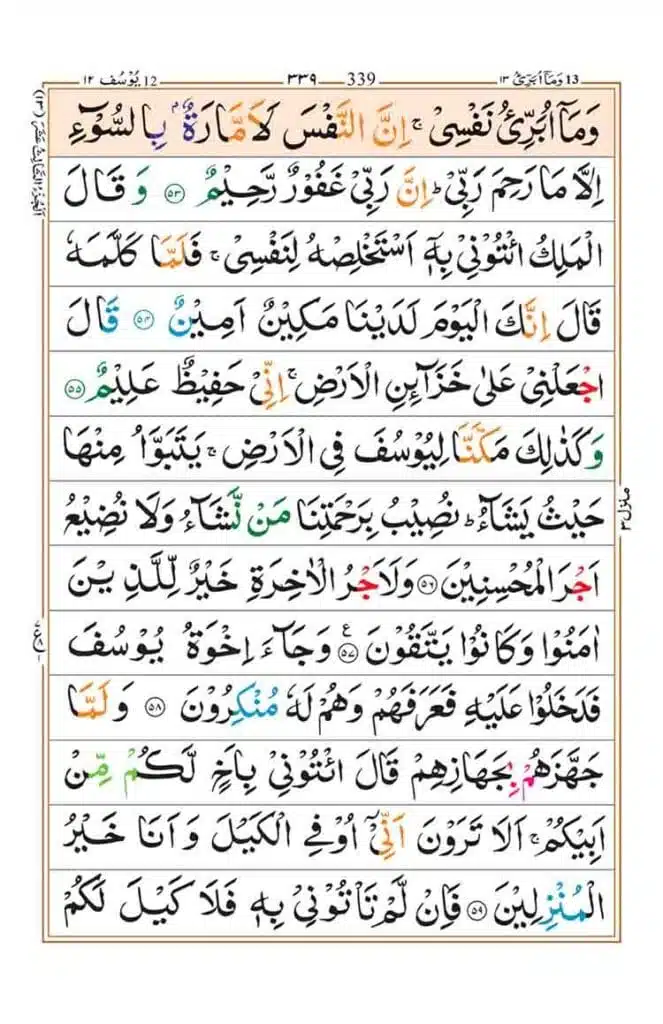 وَمَاۤ اُبَرِّئُ ١٣ 13 339 ٣٣٩ يُوْسُف ١٢ 12
وَمَاۤ اُبَرِّئُ نَفْسِىْ ۚ اِنَّ النَّفْسَ لَاَمَّارَةٌۢ بِالسُّوْٓءِ
اِلَّا مَا رَحِمَ رَبِّىْ ؕ اِنَّ رَبِّىْ غَفُوْرٌ رَّحِيْمٌ ۝٥٣ وَ قَالَ
الْمَلِكُ ائْتُوْنِىْ بِهٖۤ اَسْتَخْلِصْهُ لِنَفْسِىْ ۚ فَلَمَّا كَلَّمَهٗ
قَالَ اِنَّكَ الْيَوْمَ لَدَيْنَا مَكِيْنٌ اَمِيْنٌ ۝٥٤ قَالَ
اجْعَلْنِىْ عَلٰى خَزَآئِنِ الْاَرْضِ ۚ اِنِّىْ حَفِيْظٌ عَلِيْمٌ ۝٥٥
وَكَذٰلِكَ مَكَّنَّا لِيُوْسُفَ فِى الْاَرْضِ ۚ يَتَبَوَّاُ مِنْهَا
حَيْثُ يَشَآءُ ؕ نُصِيْبُ بِرَحْمَتِنَا مَنْ نَّشَآءُ وَلَا نُضِيْعُ
اَجْرَ الْمُحْسِنِيْنَ ۝٥٦ وَلَاَجْرُ الْاٰخِرَةِ خَيْرٌ لِّلَّذِيْنَ
اٰمَنُوْا وَكَانُوْا يَتَّقُوْنَ ۝٥٧ ع وَجَآءَ اِخْوَةُ يُوْسُفَ
فَدَخَلُوْا عَلَيْهِ فَعَرَفَهُمْ وَهُمْ لَهٗ مُنْكِرُوْنَ ۝٥٨ وَلَمَّا
جَهَّزَهُمْ بِجَهَازِهِمْ قَالَ ائْتُوْنِىْ بِاَخٍ لَّكُمْ مِّنْ
اَبِيْكُمْ ۚ اَلَا تَرَوْنَ اَنِّىْۤ اُوْفِى الْكَيْلَ وَاَنَا خَيْرُ
الْمُنْزِلِيْنَ ۝٥٩ فَاِنْ لَّمْ تَاْتُوْنِىْ بِهٖ فَلَا كَيْلَ لَكُمْ
اَلْجُزْءُ الثَّالِثُ عَشَرَ (١٣)
منزل ٣